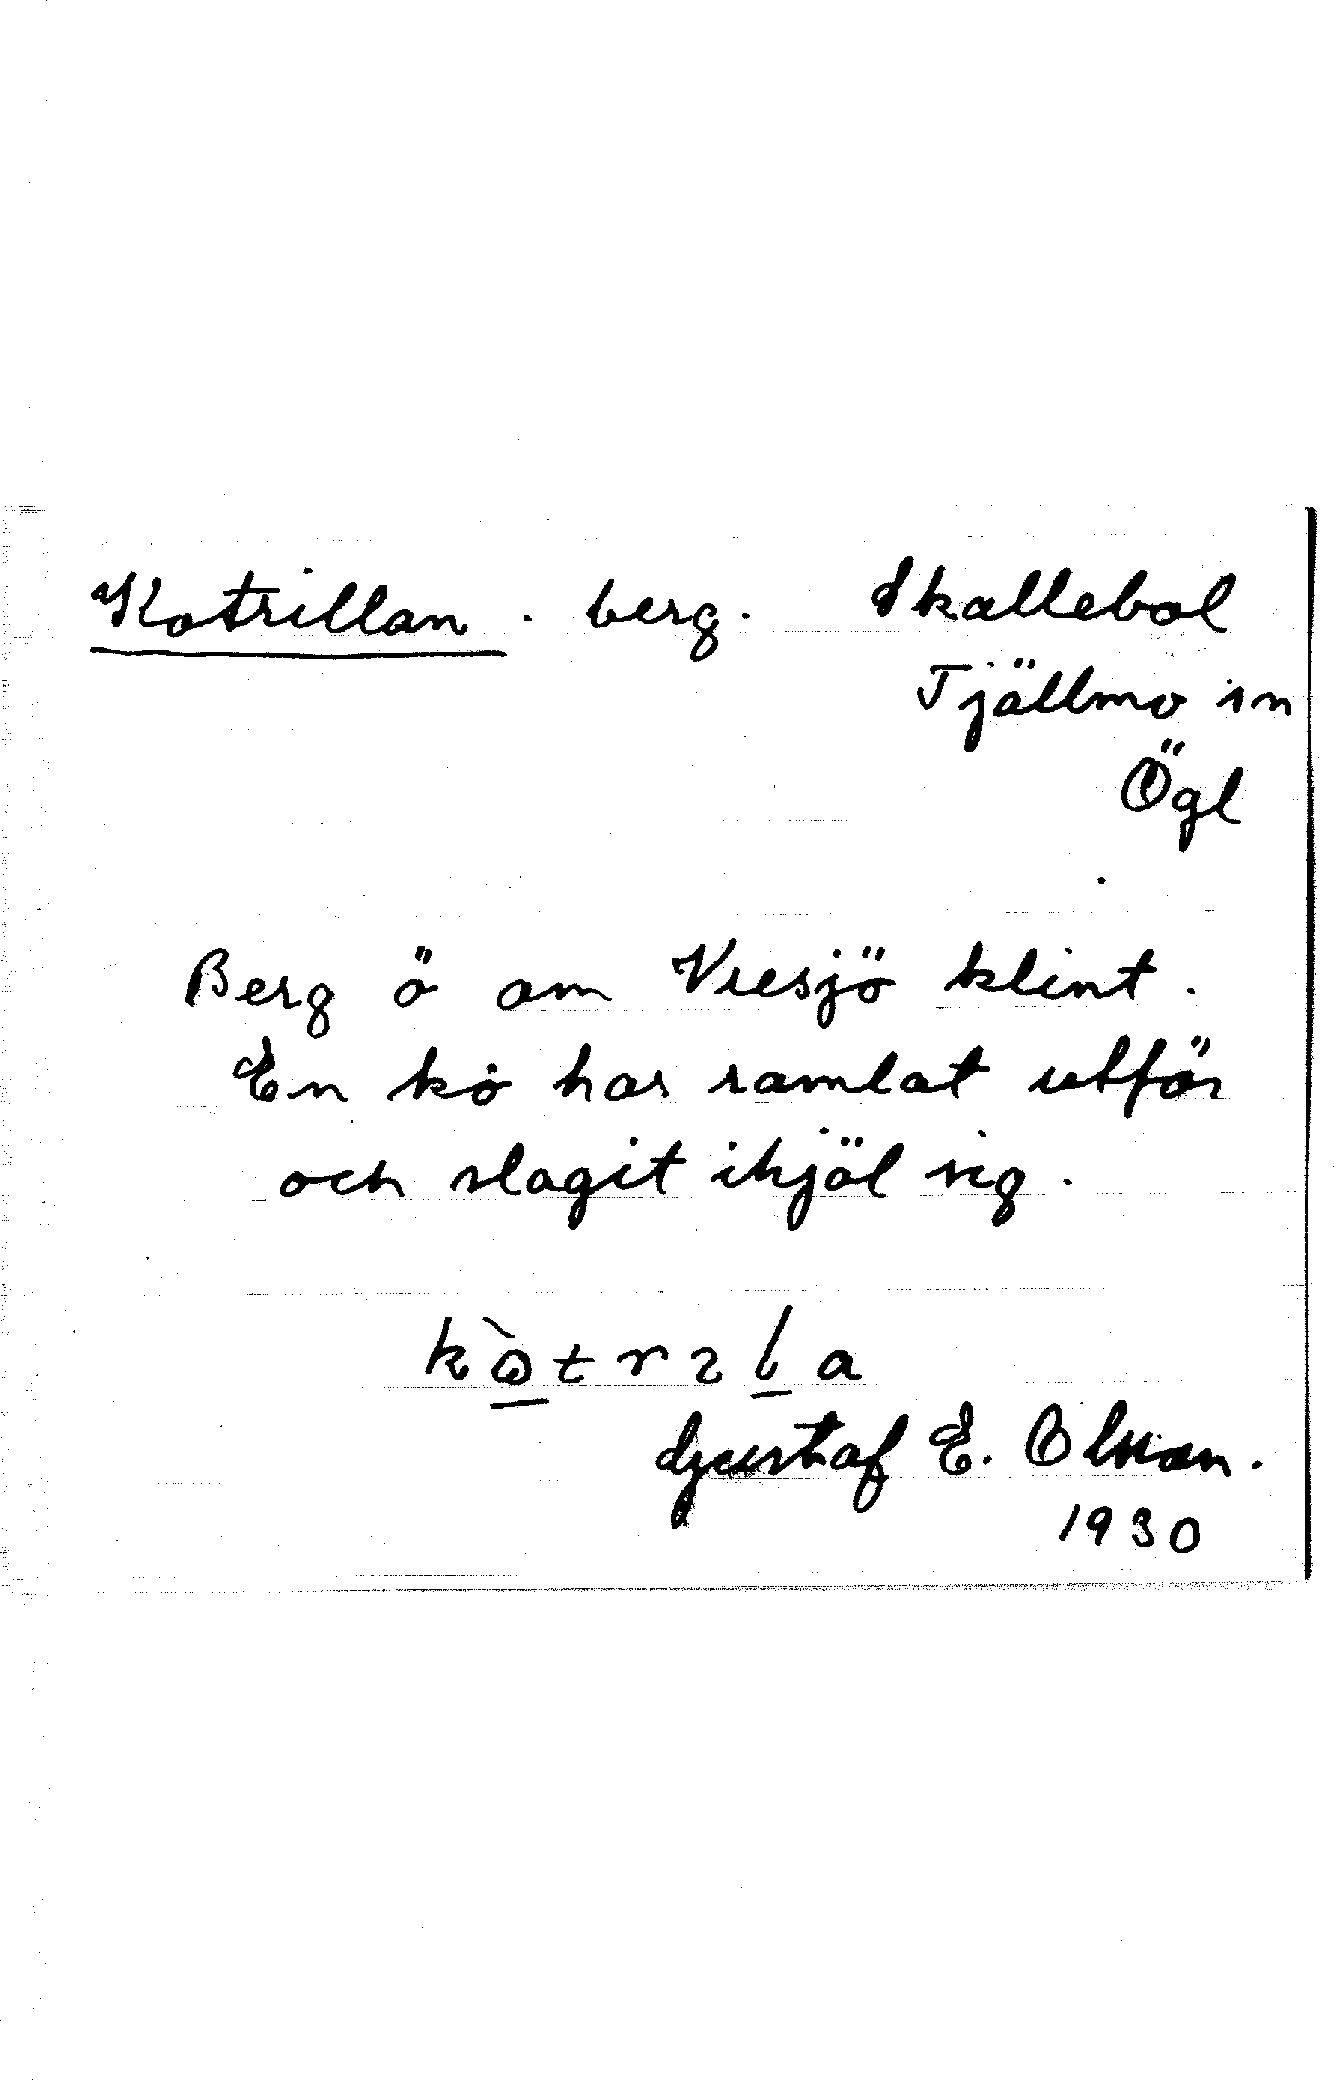 Kotrillan. berg. Skallebol
Tjällmo sn
Ögl
Berg ö om Vresjö klint.
En ko har ramlat utför
och slagit ihjäl sig.
Gustaf E. Olsson.
1930